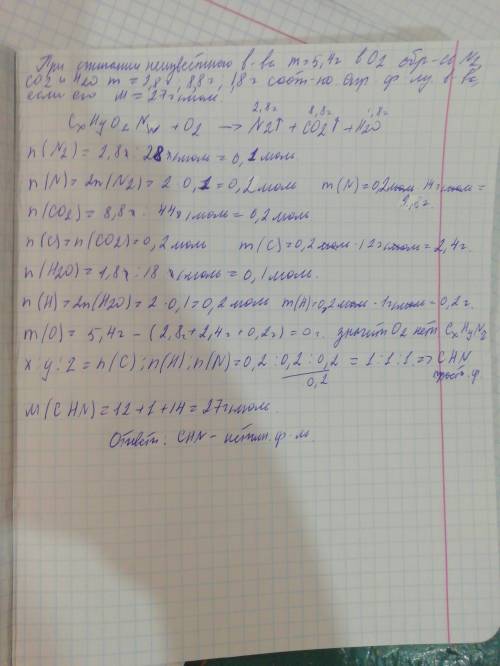 При сжигании неизвестного в-ва m=5,4г в O2 обр-сь N2,
CO2 и H2O m=2,8г, 8,8г, 1,8г соот-но. Опр. ф-лу в-ва,
если его M=27г/моль
2,8г 8,8г 1,8г
CxHyOzNw + O2 → N2↑ + CO2↑ + H2O
n(N2) = 2,8г : 28г/моль = 0,1моль
n(N) = 2n(N2) = 2·0,1 = 0,2 моль m(N) = 0,2моль·14г/моль =
2,8г
n(CO2) = 8,8г : 44г/моль = 0,2 моль
n(C) = n(CO2) = 0,2 моль m(C) = 0,2 моль·12г/моль = 2,4г.
n(H2O) = 1,8г : 18 г/моль = 0,1моль.
n(H) = 2n(H2O) = 2·0,1 = 0,2 моль m(H) = 0,2моль·1г/моль = 0,2г.
m(O) = 5,4г - (2,8г + 2,4г + 0,2г) = 0г. значит O2 нет CxHyNz
x : y : z = n(C) : n(H) : n(N) = 0,2 : 0,2 : 0,2 = 1:1:1 => CHN
0,2 прост. ф.
M(CHN) = 12+1+14 = 27г/моль.
Ответ: CHN - истин. ф-л.